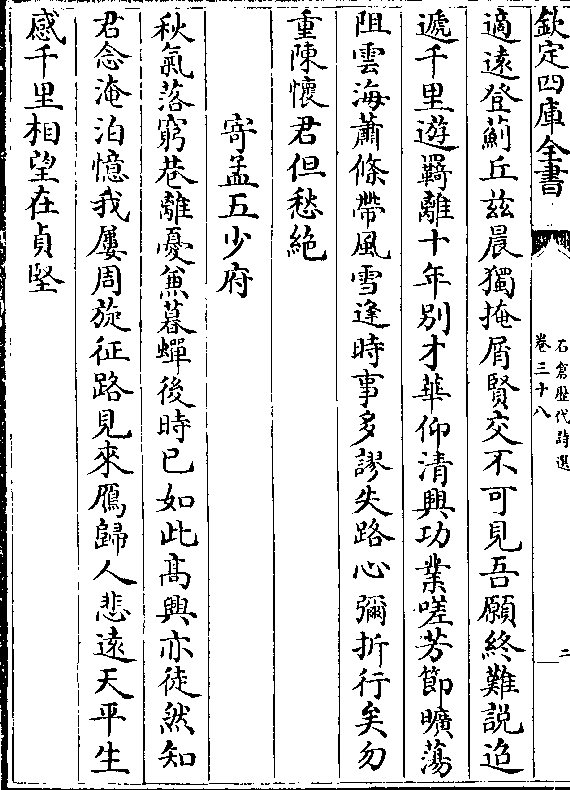 欽定四庫全書
石倉歴代詩選
卷三十八
二
適遠登薊丘兹晨獨掩屑賢交不可見吾願終難説迢
遞千里遊羇離十年別才華仰清興功業嗟芳節曠蕩
阻雲海蕭條帶風雪逢時事多謬失路心彌折行矣勿
重陳懷君但愁絶
寄孟五少府
秋氣落窮巷離憂兼暮蟬後時已如此髙興亦徒然知
君念淹泊憶我屢周旋征路見來鴈歸人悲遠天平生
感千里相望在貞堅